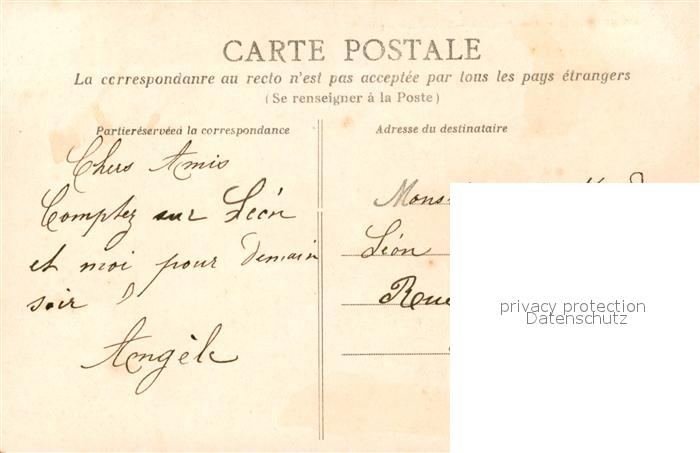 CARTE POSTALE
La ccrrespondanre au recto n'est pas acceptée par tous les pays étrangers
(Se renseigner à la Poste)
Partieréservéeà la correspondance
Adresse du destinataire
Chers Amis
Comptez sur Léon
et moi pour demain
soir
Angèle
Mons
Léon
Rue
privacy protection
Datenschutz